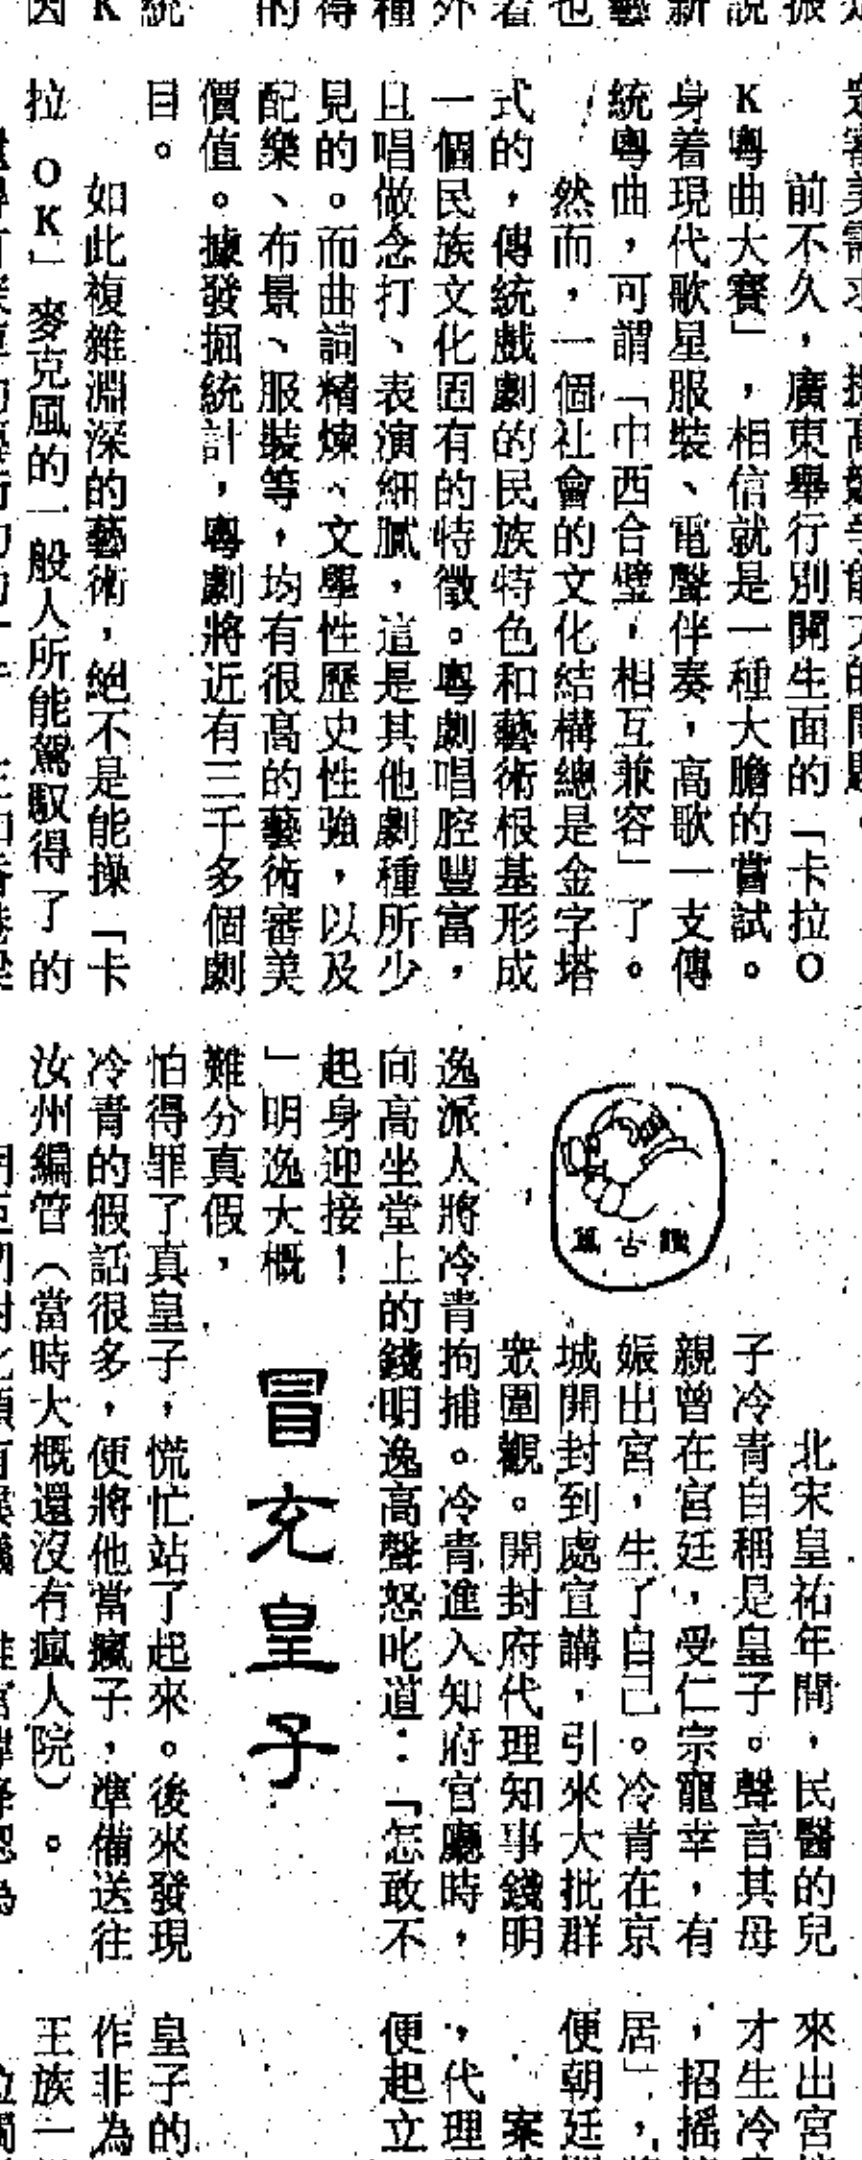 前不久，廣東舉行別開生面的「卡拉O
K粵曲大賽」，相信就是一種大膽的嘗試。
身着現代歌星服裝、電聲伴奏，高歌一支傳
統粵曲，可謂「中西合璧，相互兼容」了。
然而，一個社會的文化結構總是金字塔
式的，傳統戲劇的民族特色和藝術根基形成
一個民族文化固有的特徵。粵劇唱腔豐富，
且唱做念打、表演細膩，這是其他劇種所少
見的。而曲詞精煉、文學性歷史性強，以及
配樂、布景、服裝等，均有很高的藝術審美
價值。據發掘統計，粵劇將近有三千多個劇
目。
如此複雜淵深的藝術，絕不是能操「卡
拉OK」麥克風的一般人所能駕馭得了的
冒充皇子
北宋皇祐年間，民醫的兒
子冷青自稱是皇子。聲言其母
親曾在宮廷，受仁宗寵幸，有
娠出宮，生了自己。冷青在京
城開封到處宣講，引來大批群
眾圍觀。開封府代理知事錢明
逸派人將冷青拘捕。冷青進入知府官廳時，
向高坐堂上的錢明逸高聲怒叱道：「怎敢不
起身迎接！
」明逸大概
難分真假，
怕得罪了真皇子，慌忙站了起來。後來發現
冷青的假話很多，便將他當瘋子，準備送往
汝州編管（當時大概還沒有瘋人院）。
來出宮
才生冷
，招搖
居」，
便朝廷
案
，代理
便起立
皇子的
作非為
王族一